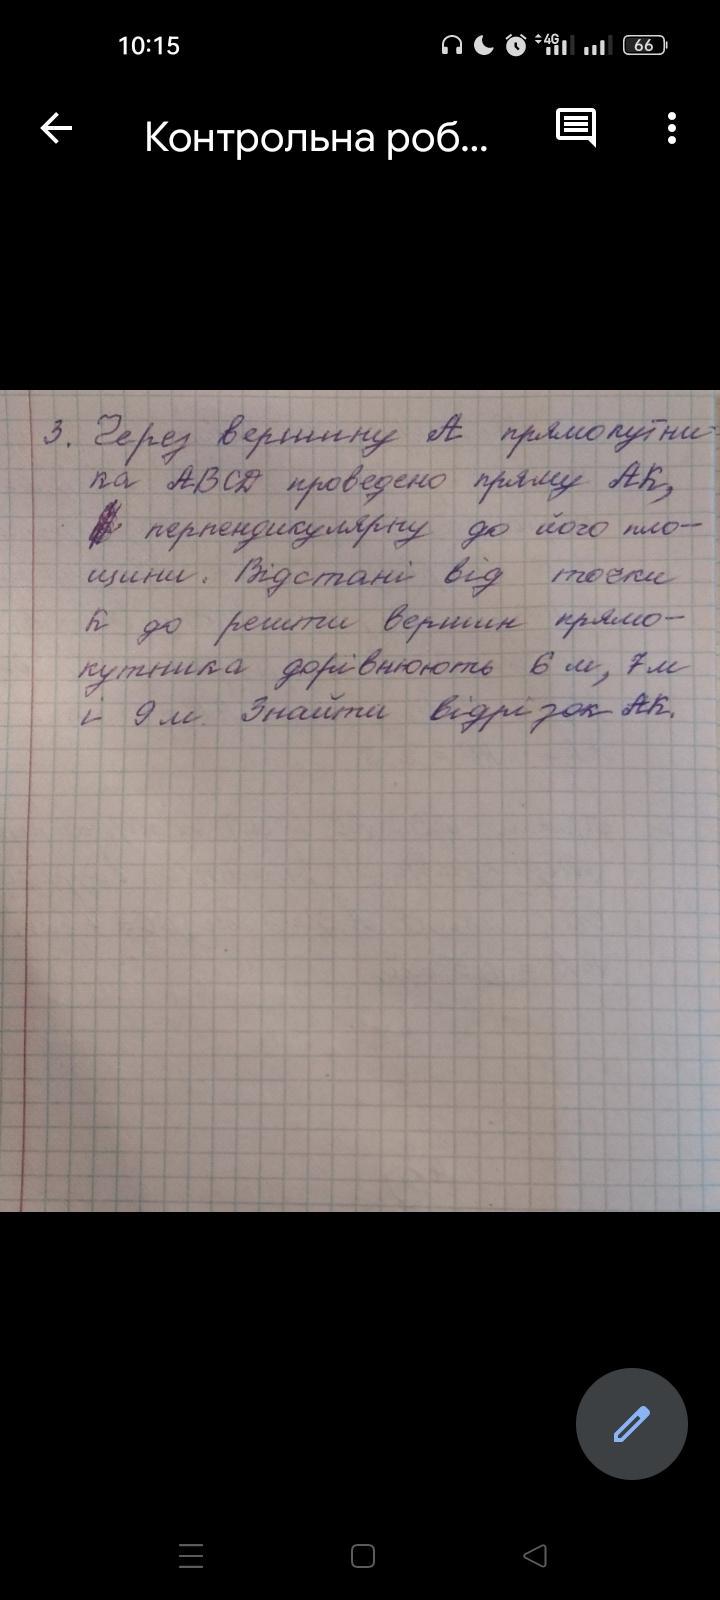 10:15
4G
66
Контрольна роб...
3. Через вершину А прямокутни-
ка ABCD проведено пряму АК,
перпендикулярну до його пло-
щини. Відстані від точки
К до решти вершин прямо-
кутника дорівнюють 6 м, 7 м
і 9 м. Знайти відрізок АК.